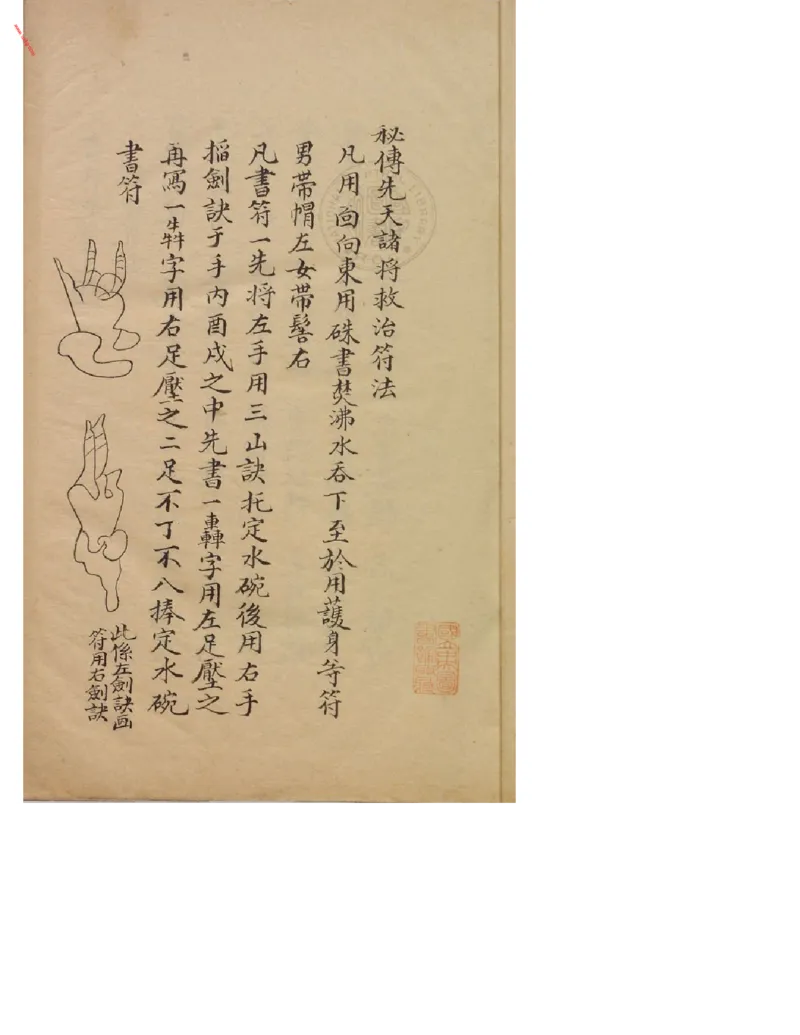 秘傳先天諸將救治符法
凡用面向東用硃書焚沸水吞下至於用護身等符
男帶帽左女帶髻右
凡書符一先將左手用三山訣托定水碗後用右手
搯劍訣于手內酉戌之中先書一轟字用左足壓之
再寫一犇字用右足壓之二足不丁不八捧定水碗
書符
此係左劍訣画
符用右劍訣